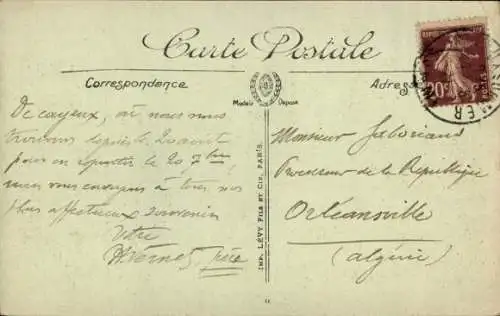 Carte Postale
Correspondance
Modèle Déposé
Adresse
De Cayeux, où nous nous
trouvons depuis le 20 août
pour en repartir le 20 7bre,
nous vous envoyons à tous nos
plus affectueux souvenirs
Votre
père
IMP. LÉVY FILS ET CIE, PARIS.
Monsieur
Procureur de la République
Orléansville
(algérie)